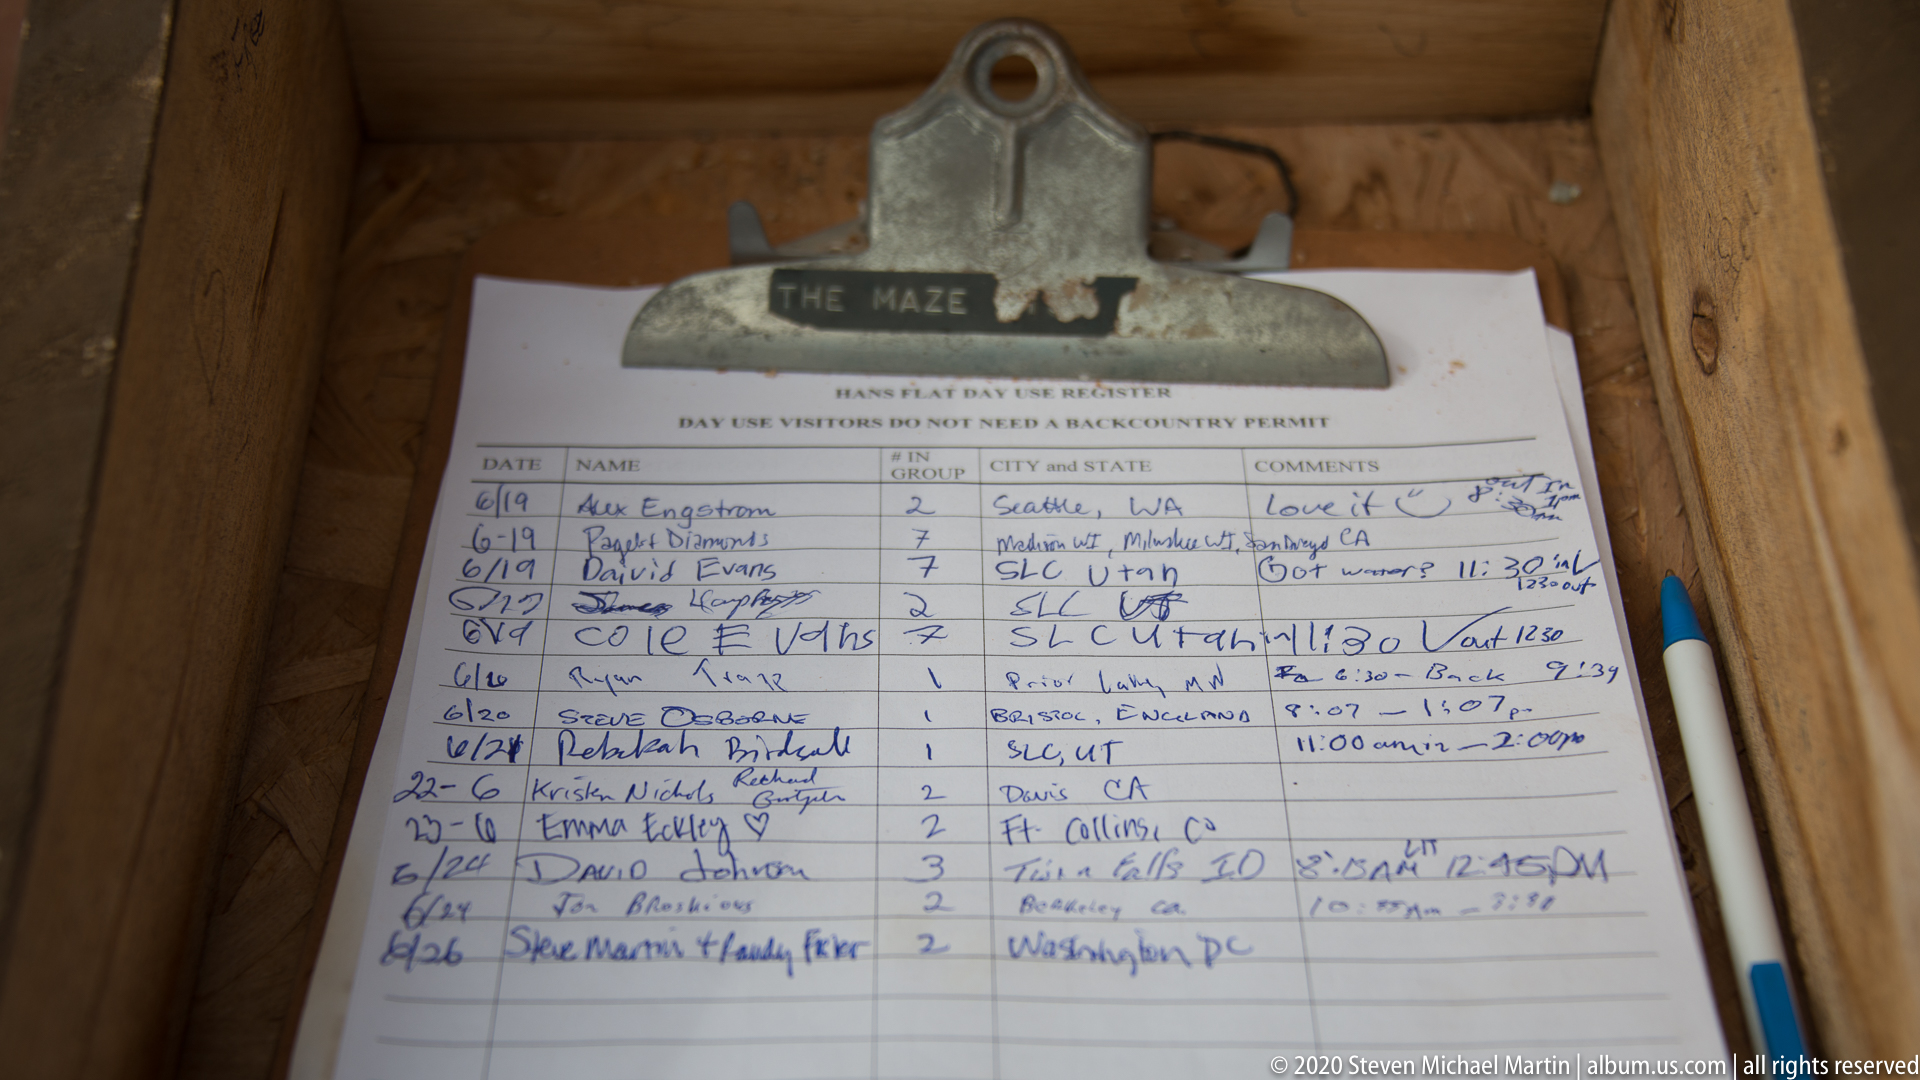 THE MAZE
HANS FLAT DAY USE REGISTER
DAY USE VISITORS DO NOT NEED A BACKCOUNTRY PERMIT
DATE NAME # IN GROUP CITY and STATE COMMENTS
6/19 Alex Engstrom 2 Seattle, WA Love it 8:30am out In 1pm
6-19 Diamonds 7 Madison WI, Milwaukee WI, CA
6/19 Daivid Evans 7 SLC Utah Got water? 11:30 in 1230 out
2 SLC
6/19 cole Evans 7 SLC Utah in 11:30 out 1230
6/20 Ryan 1 Prior Lake, MN 6:30 - Back 9:39
6/20 STEVE OSBORNE 1 BRISTOL, ENGLAND 8:07 - 1:07pm
6/21 Rebekah Birdsall 1 SLC, UT 11:00 am in - 2:00pm
22-6 Kristen Nichols 2 Davis CA
23-6 Emma Eckley ♡ 2 Ft. Collins, Co
6/24 DAVID Johnson 3 Twin Falls ID 8:15AM 12:45PM
6/24 Jon 2 Berkeley ca.
6/26 Steve Martin + Randy 2 Washington DC
© 2020 Steven Michael Martin | album.us.com | all rights reserved